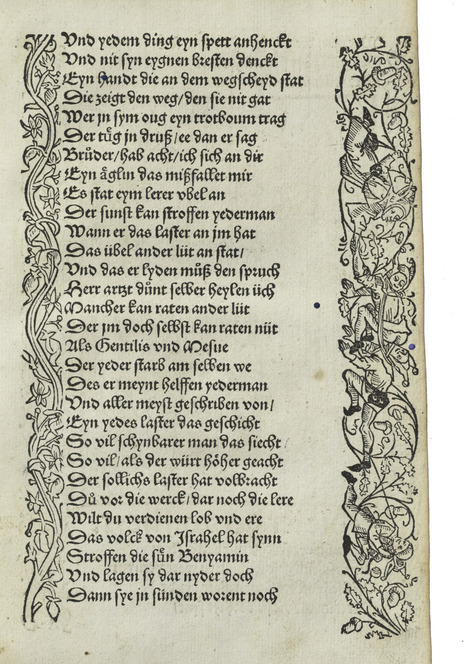 Vnd yedem ding eyn spett anhenckt
Vnd nit syn eygnen bresten denckt
Eyn handt die an dem wegscheyd stat
Die zeigt den weg/den sie nit gat
Wer jn sym oug eyn trotboum trag
Der tuͤg jn druß/ee dan er sag
Bruͤder/hab acht/ich sich an dir
Eyn aͤglin das mißfallet mir
Es stat eym lerer vbel an
Der sunst kan stroffen yederman
Wann er das laster an jm hat
Das uͤbel ander luͤt an stat/
Vnd das er lyden muͤß den spruch
Herr artzt duͤnt selber heylen uͤch
Mancher kan raten ander luͤt
Der jm doch selbst kan raten nuͤt
Als Gentilis vnd Mesue
Der yeder starb am selben we
Des er meynt helffen yederman
Vnd aller meyst geschriben von/
Eyn yedes laster das geschicht
So vil schynbarer man das siecht
So vil/als der wuͤrt hoͤher geacht
Der sollichs laster hat volbracht
Duͦ vor die werck/dar noch die lere
Wilt du verdienen lob vnd ere
Das volck von Israhel hat synn
Stroffen die suͤn Benyamin
Vnd lagen sy dar nyder doch
Dann sye jn sünden worent noch